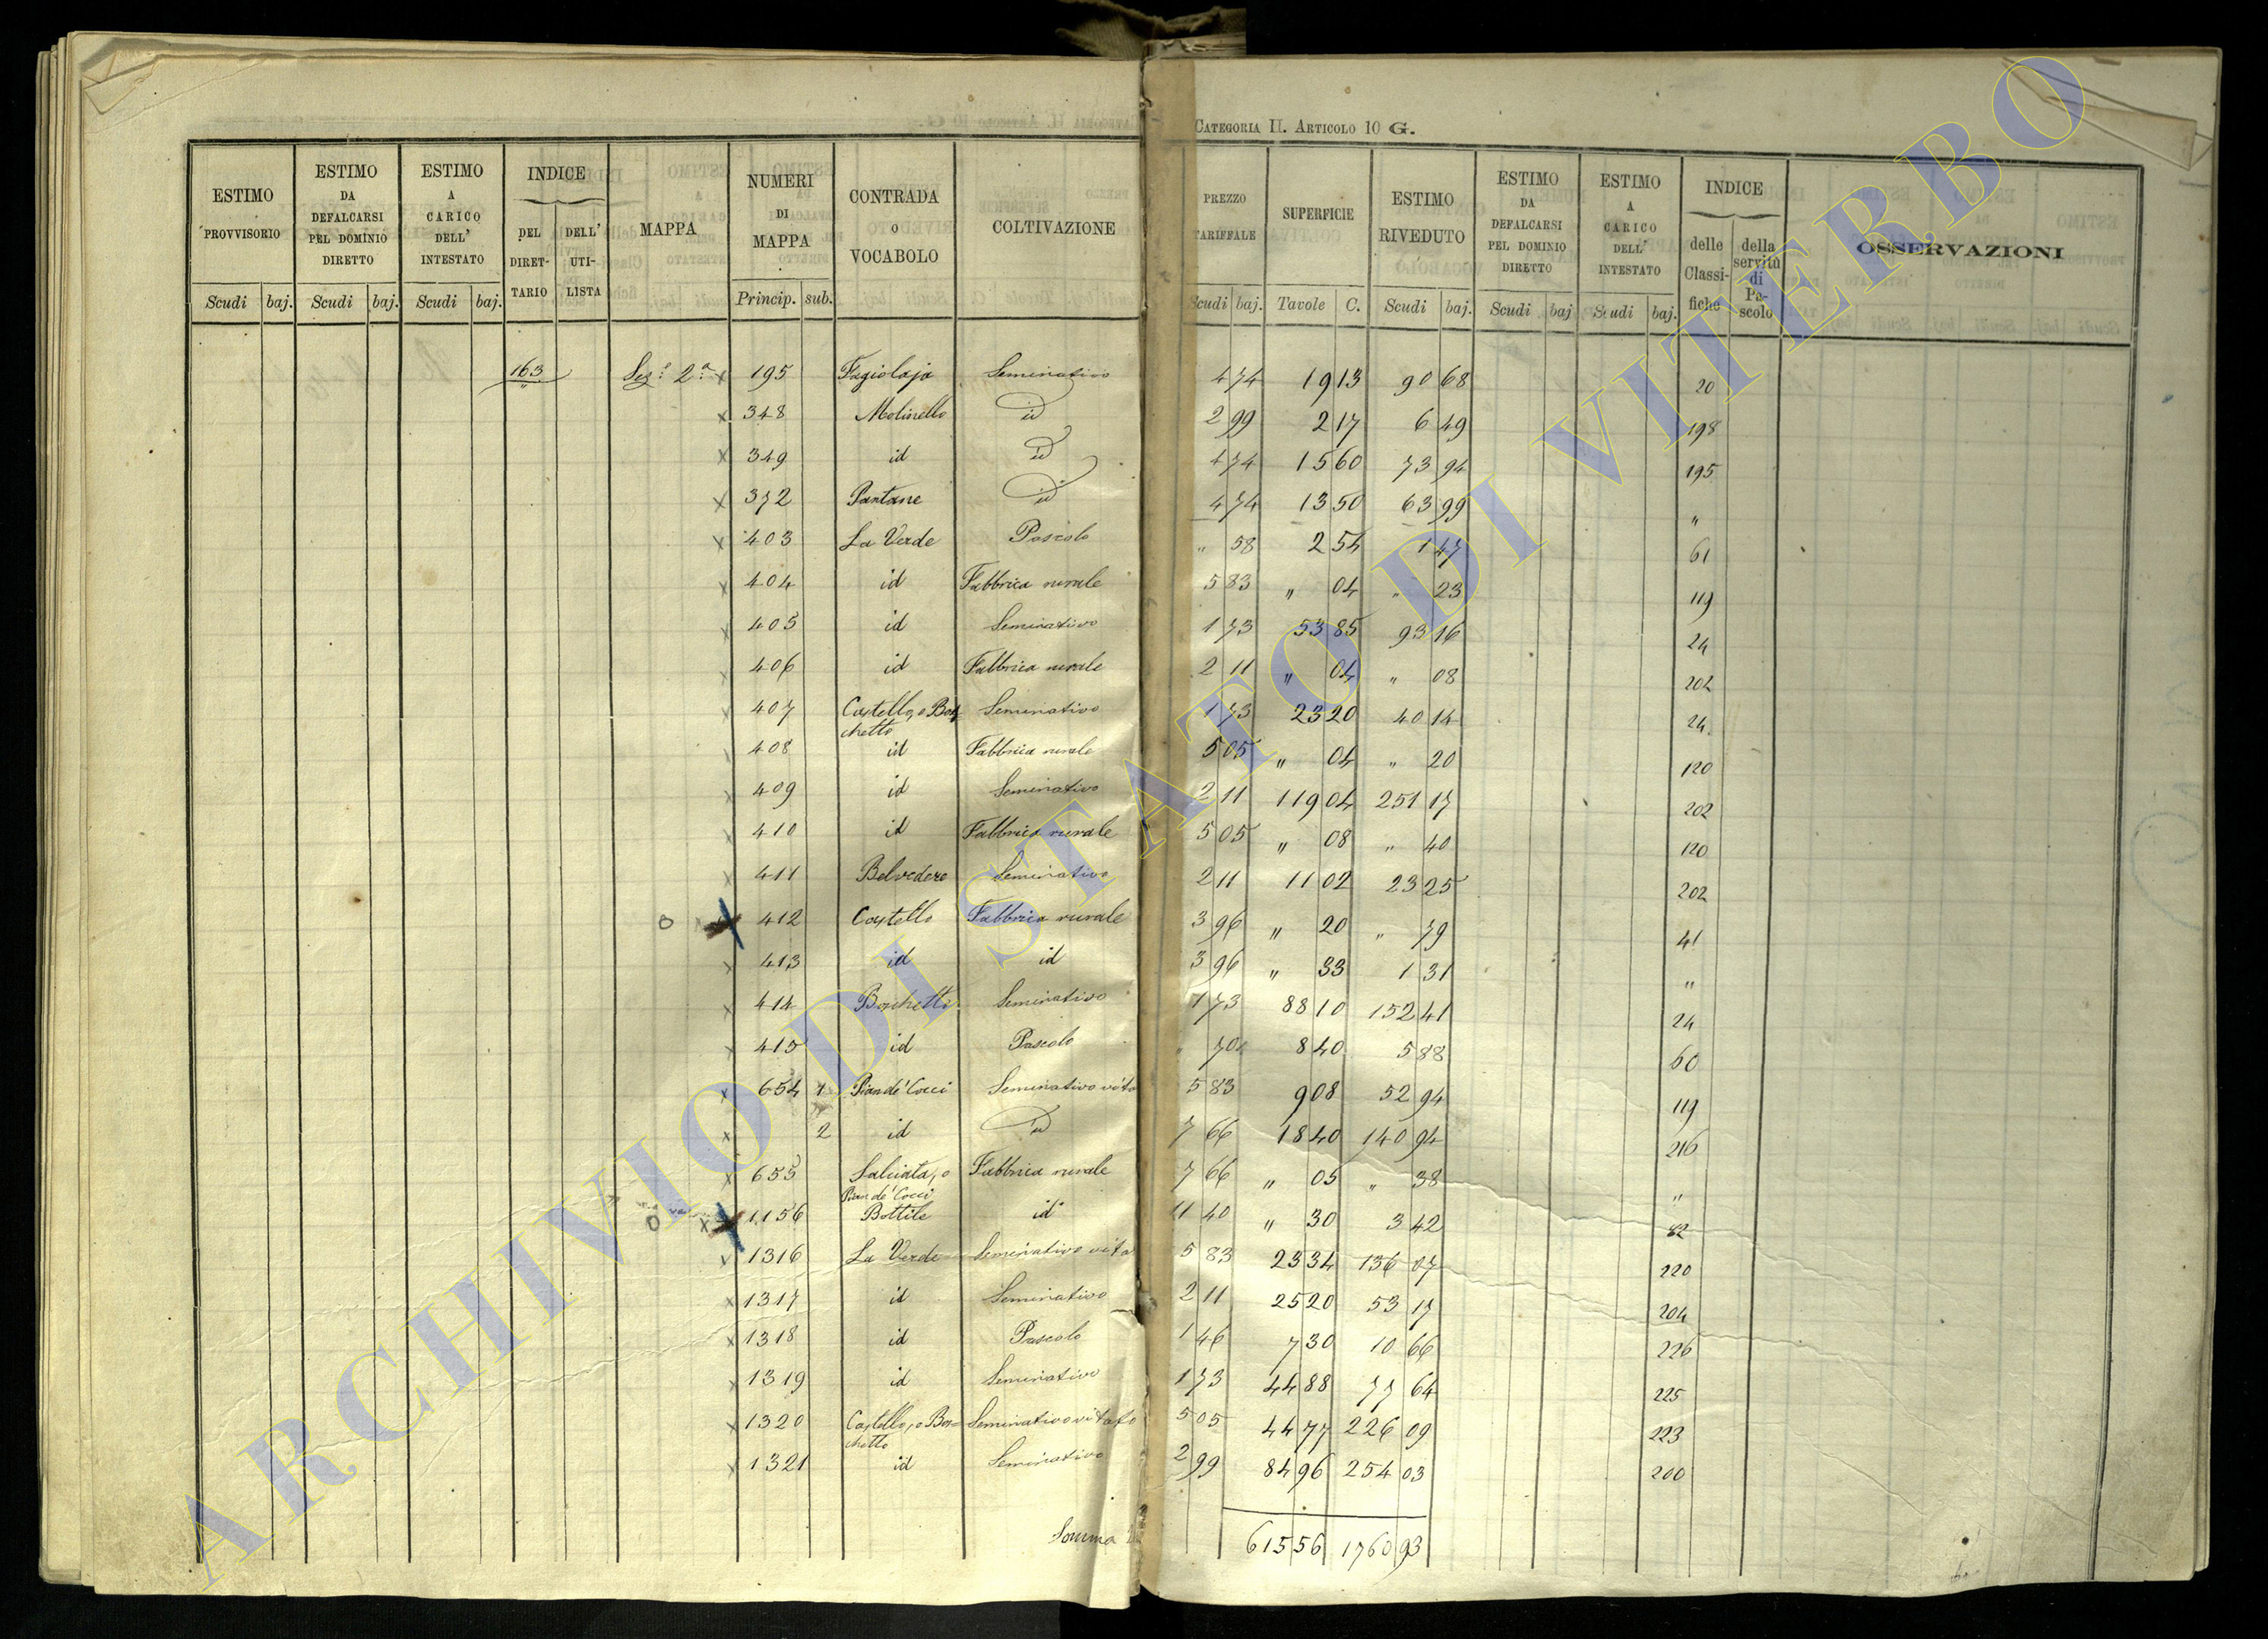 CATEGORIA II. ARTICOLO 10 G.
ESTIMO PROVVISORIO Scudi baj. ESTIMO DA DEFALCARSI PEL DOMINIO DIRETTO Scudi baj. ESTIMO A CARICO DELL' INTESTATO Scudi baj. INDICE DEL DIRETTARIO DELL' UTILISTA MAPPA NUMERI DI MAPPA Princip. sub. CONTRADA O VOCABOLO COLTIVAZIONE PREZZO TARIFFALE Scudi baj. SUPERFICIE Tavole C. ESTIMO RIVEDUTO Scudi baj. ESTIMO DA DEFALCARSI PEL DOMINIO DIRETTO Scudi baj ESTIMO A CARICO DELL' INTESTATO Scudi baj. INDICE delle Classifiche della servitù di Pascolo OSSERVAZIONI
163 Sez.e 2.a x 195 Fagiolaja Seminativo 4 74 19 13 90 68 20
x 348 Molinello id 2 99 2 17 6 49 198
x 349 id id 4 74 15 60 73 94 195
x 372 Pantane id 4 74 13 50 63 99 "
x 403 La Verde Pascolo " 58 2 54 1 47 61
x 404 id Fabbrica rurale 5 83 " 04 " 23 119
x 405 id Seminativo 1 73 53 85 93 16 24
x 406 id Fabbrica rurale 2 11 " 04 " 08 202
x 407 Castello, o Bos
chetto Seminativo 1 73 23 20 40 14 24
x 408 id Fabbrica rurale 5 05 " 04 " 20 120
x 409 id Seminativo 2 11 119 04 251 17 202
x 410 id Fabbrica rurale 5 05 " 08 " 40 120
x 411 Belvedere Seminativo 2 11 11 02 23 25 202
0 x 412 Castello Fabbrica rurale 3 96 " 20 " 79 41
x 413 id id 3 96 " 33 1 31 "
x 414 Boschetto Seminativo 1 73 88 10 152 41 24
x 415 id Pascolo " 70 8 40 5 88 60
x 654 1 Pian de' Cocci Seminativo vito 5 83 9 08 52 94 119
x 2 id id 7 66 18 40 140 94 216
x 655 Salciata, o
Pian de' Cocci Fabbrica rurale 7 66 " 05 " 38 "
0 x 1156 Bottile id 11 40 " 30 3 42 82
x 1316 La Verde Seminativo vito 5 83 23 34 136 07 220
x 1317 id Seminativo 2 11 25 20 53 17 204
x 1318 id Pascolo 1 46 7 30 10 66 226
x 1319 id Seminativo 1 73 44 88 77 64 225
x 1320 Castello, o Bos=
chetto Seminativo vitato 5 05 44 77 226 09 223
x 1321 id Seminativo 2 99 84 96 254 03 200
Somma 615 56 1760 93
ARCHIVIO DI STATO DI VITERBO